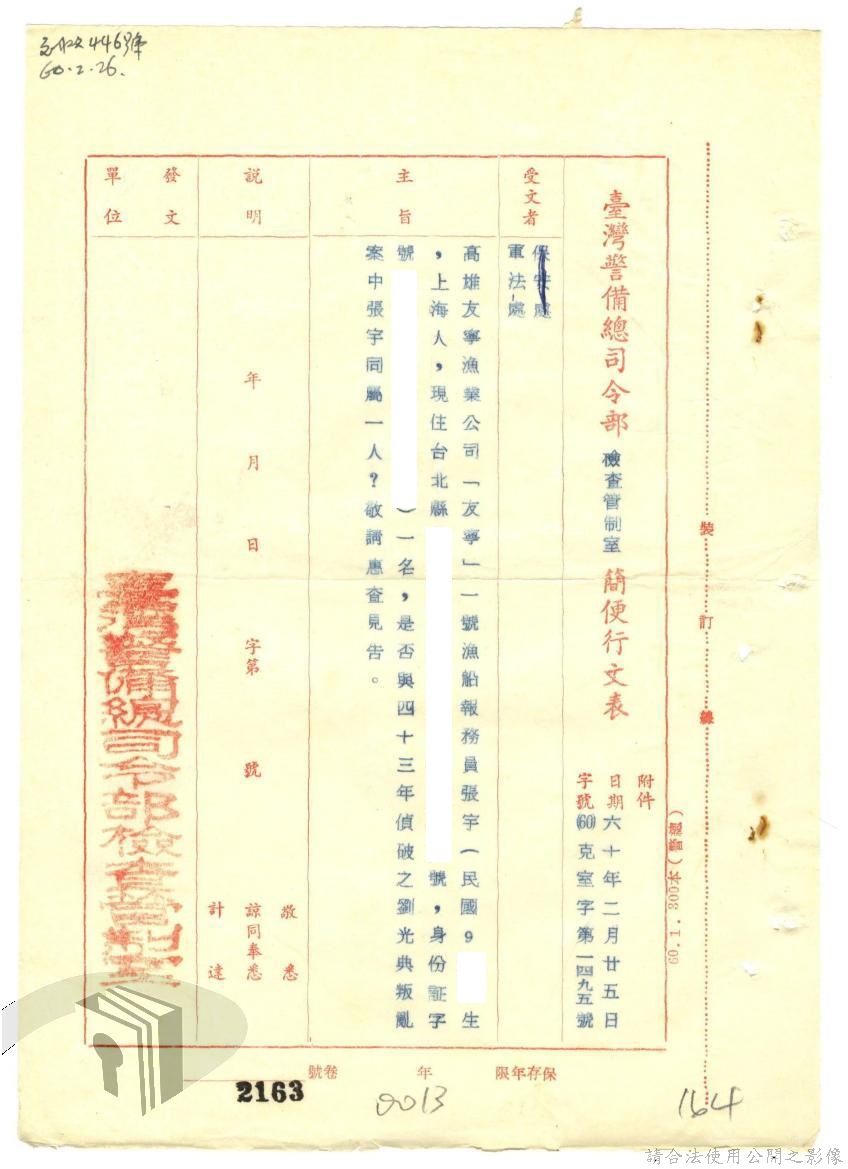 446號
60.2.26.
臺灣警備總司令部檢查管制室簡便行文表
附件
日期六十年二月廿五日
字號(60)克室字第一四九五號
受文者
保安處
軍法處
主旨
高雄友寧漁業公司「友寧」一號漁船報務員張宇(民國9 生
,上海人,現住台北縣 號,身份証字
號 )一名,是否與四十三年偵破之劉光典叛亂
案中張宇同屬一人?敬請惠查見告。
說明
年 月 日 字第 號
敬悉
諒同奉悉
計達
發文單位
臺灣警備總司令部檢查管制室
裝訂線
60.1.300本
保存年限 年 卷號
2163
0013
164
請合法使用公開之影像